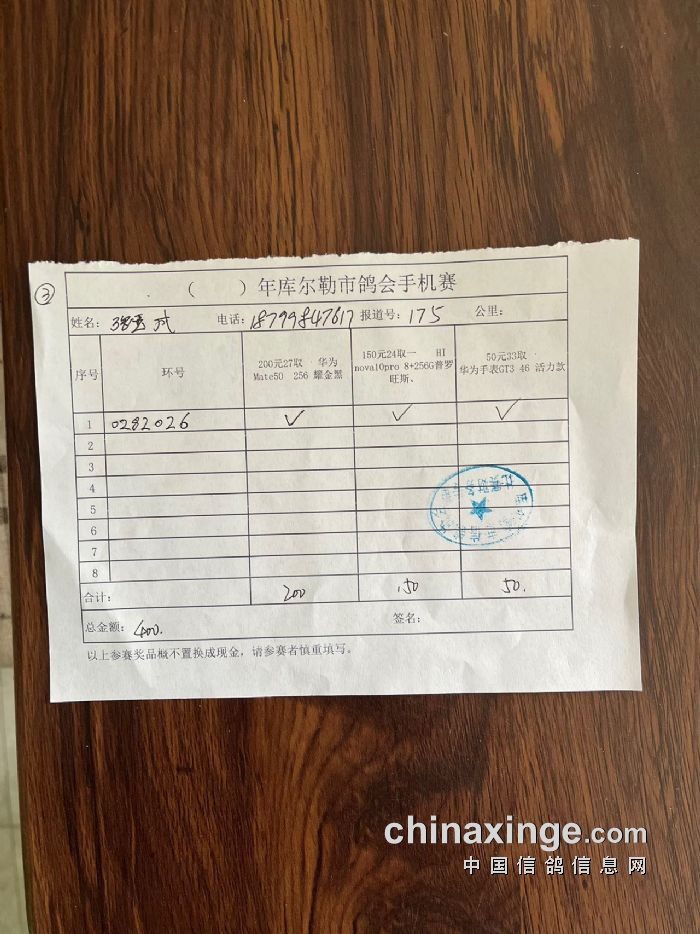 ③
（ ）年库尔勒市鸽会手机赛
姓名： 电话：18799847617 报道号：175 公里：
序号 环号 200元27取一 华为 Mate50 256 耀金黑 150元24取一 HI nova10pro 8+256G普罗旺斯、 50元33取 华为手表GT3 46 活力款
1 0282026 ✓ ✓ ✓
2
3
4
5
6
7
8
合计： 200 150 50.
总金额：400. 签名：
以上参赛奖品概不置换成现金，请参赛者慎重填写。
chinaxinge.com
中国信鸽信息网